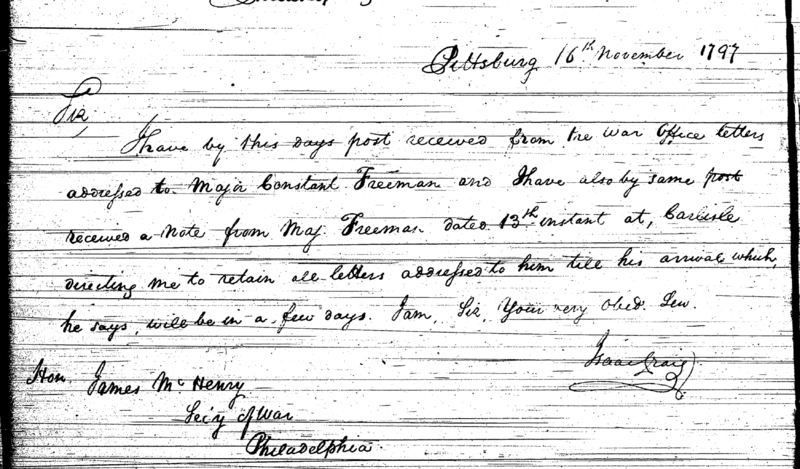 Pittsburg 16th November 1797
Sir,
I have by this days post received from the War Office letters
addressed to Major Constant Freeman and I have also by same post
received a Note from Maj. Freeman dated 13th instant at, Carlisle
directing me to retain all letters addressed to him till his arrival which,
he says, will be in a few days. I am, Sir, Your very Obed. Sev.
Isaac Craig
Hon. James McHenry
Sec'y of War
Philadelphia.